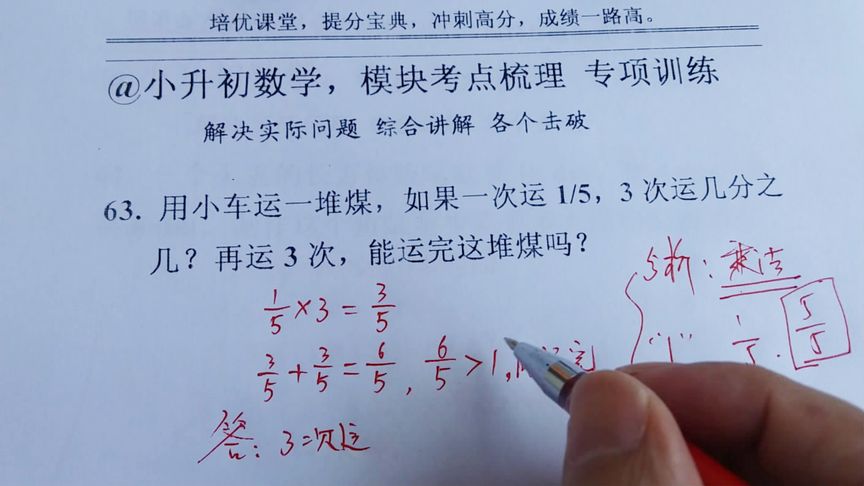 培优课堂，提分宝典，冲刺高分，成绩一路高。
@小升初数学，模块考点梳理 专项训练
解决实际问题 综合讲解 各个击破
63. 用小车运一堆煤，如果一次运 1/5，3 次运几分之
几？再运 3 次，能运完这堆煤吗？
分析：乘法
1/5×3=3/5
"1" 1/5. 5/5
3/5+3/5=6/5, 6/5>1, 完
答：3次运